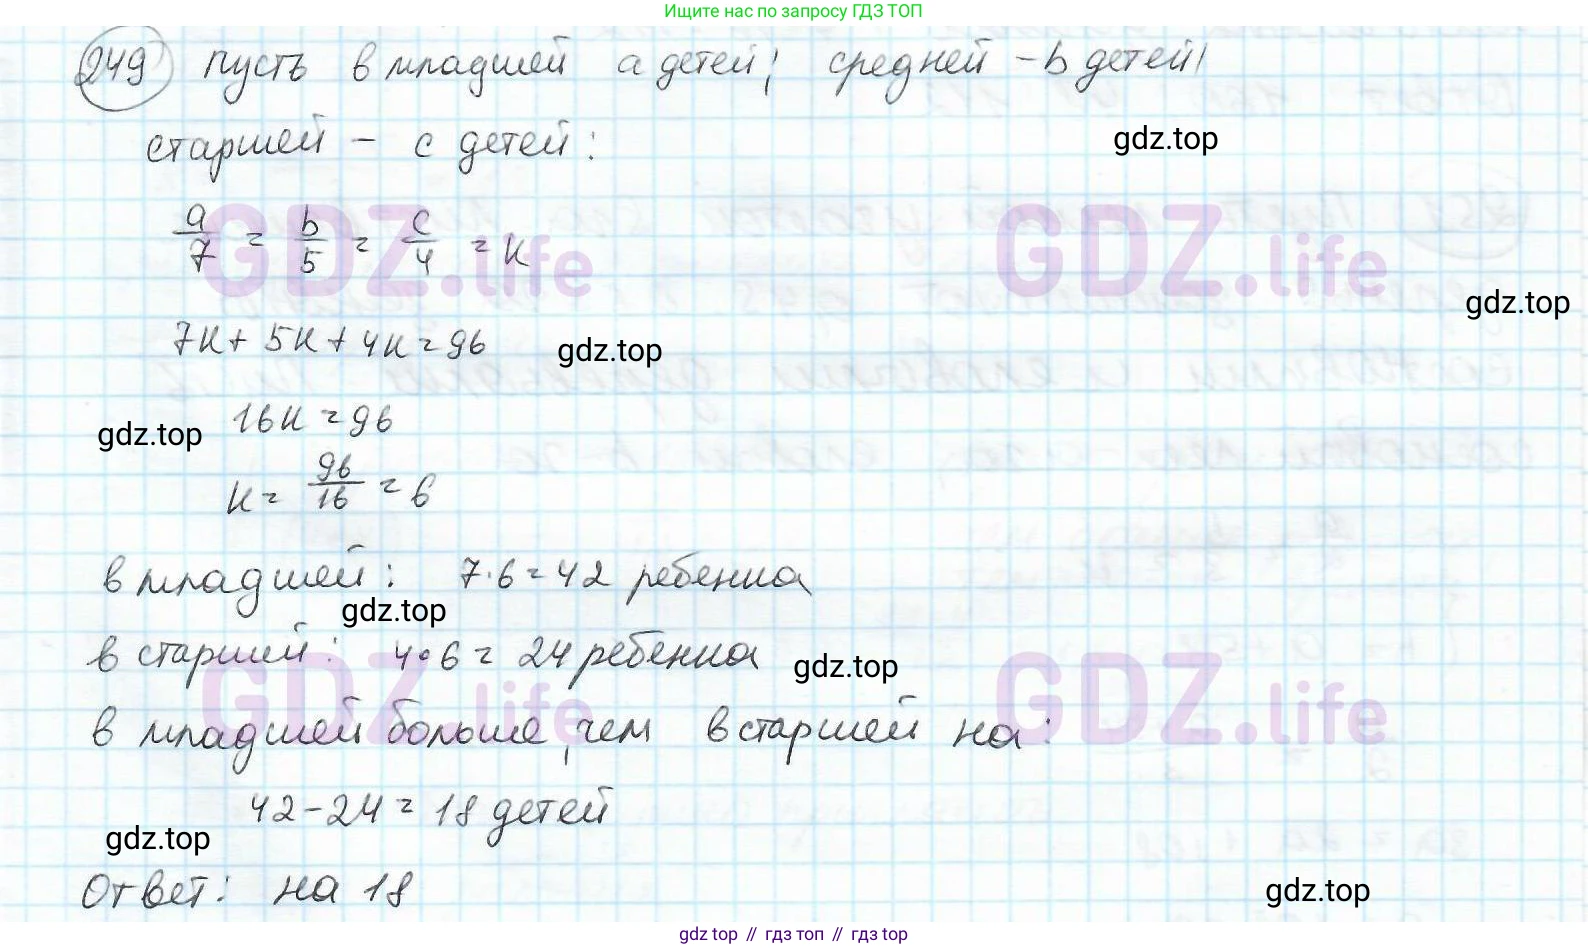 Ищите нас по запросу ГДЗ ТОП
249 Пусть в младшей a детей; средней – b детей;
gdz.top
старшей – c детей:
a/7 = b/5 = c/4 = к
GDZ.life GDZ.life
gdz.top
7к + 5к + 4к = 96
gdz.top
16к = 96
gdz.top
к = 96/16 = 6
в младшей: 7·6 = 42 ребенка
gdz.top
в старшей: 4·6 = 24 ребенка
gdz.top
GDZ.life GDZ.life
в младшей больше, чем в старшей на:
42 – 24 = 18 детей
gdz.top
Ответ: на 18
gdz.top
gdz top // гдз топ // гдз top